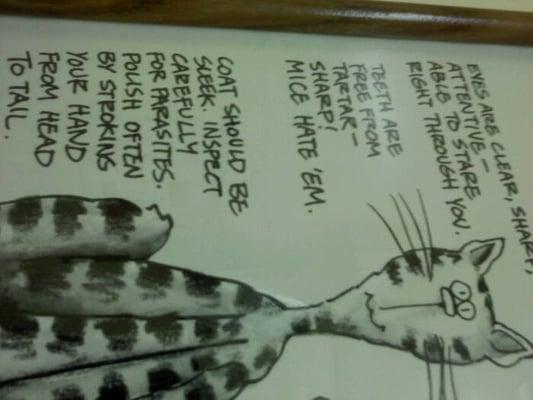 EYES ARE CLEAR, SHARP,
ATTENTIVE —
ABLE TO STARE
RIGHT THROUGH YOU.
TEETH ARE
FREE FROM
TARTAR —
SHARP!
MICE HATE 'EM.
COAT SHOULD BE
SLEEK. INSPECT
CAREFULLY
FOR PARASITES.
POLISH OFTEN
BY STROKING
YOUR HAND
FROM HEAD
TO TAIL.